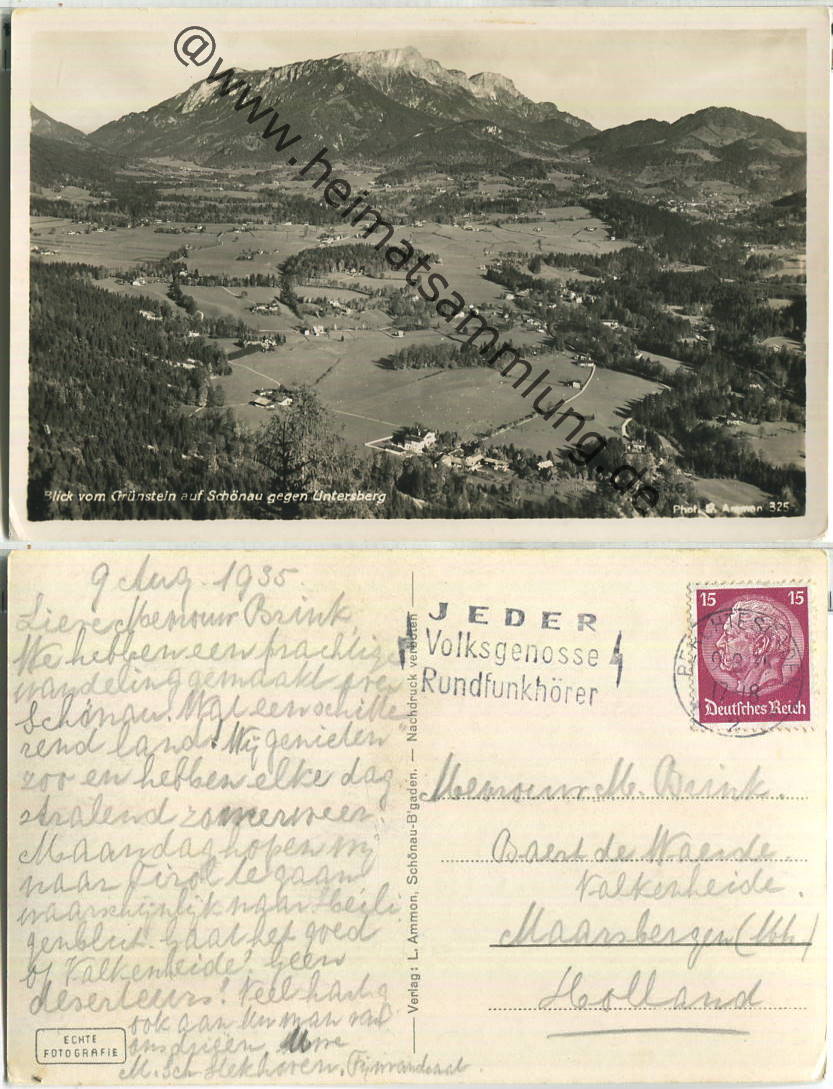 @www.heimatsammlung.de
Blick vom Grünstein auf Schönau gegen Untersberg
Phot. L. Ammon 325
9 Aug. 1935.
Lieve Mevrouw Brink,
We hebben een prachtige
wandeling gemaakt over
Schönau. Wat een schitte
rend land! Wij genieten
zoo en hebben elke dag
stralend zomerweer.
Maandag hopen wij
naar Tirol te gaan
waarschijnlijk naar Heili
genblut. Gaat het goed
op Valkenheide? Geen
deserteurs! Veel hartelijks
ook aan Uw man van
ons drieën. Uwe
M. Sch
ECHTE
FOTOGRAFIE
Verlag: L. Ammon, Schönau-B'gaden. — Nachdruck verboten
JEDER
Volksgenosse
Rundfunkhörer
15 15
Deutsches Reich
BERCHTESGADEN
Mevrouw M. Brink.
Valkenheide.
Maarsbergen
Holland